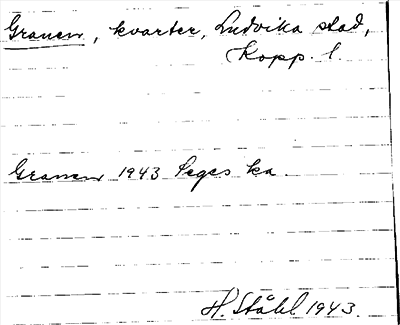 Granen, kvarter, Ludvika stad,
Kopp. l.
Granen 1943 Seges ka.
H. Ståhl 1943.